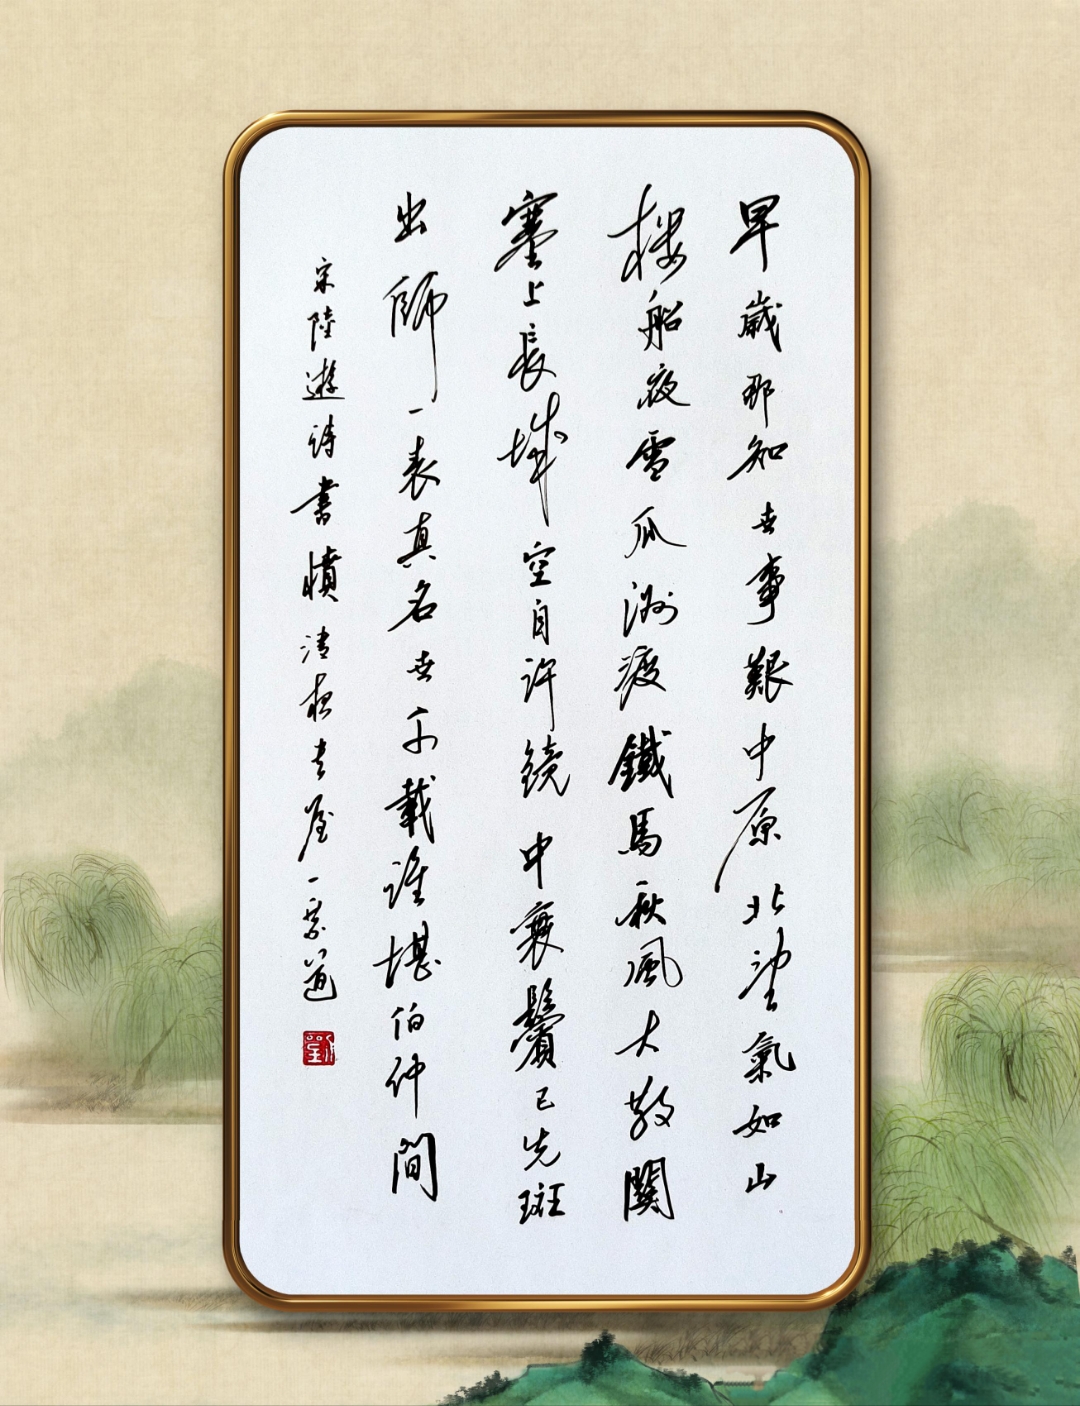 早歲那知世事艱中原北望氣如山
楼船夜雪瓜洲渡鐵馬秋風大散關
塞上長城空自許鏡中衰鬢已先斑
出師一表真名世千載誰堪伯仲間
宋陸遊詩書憤清
劉